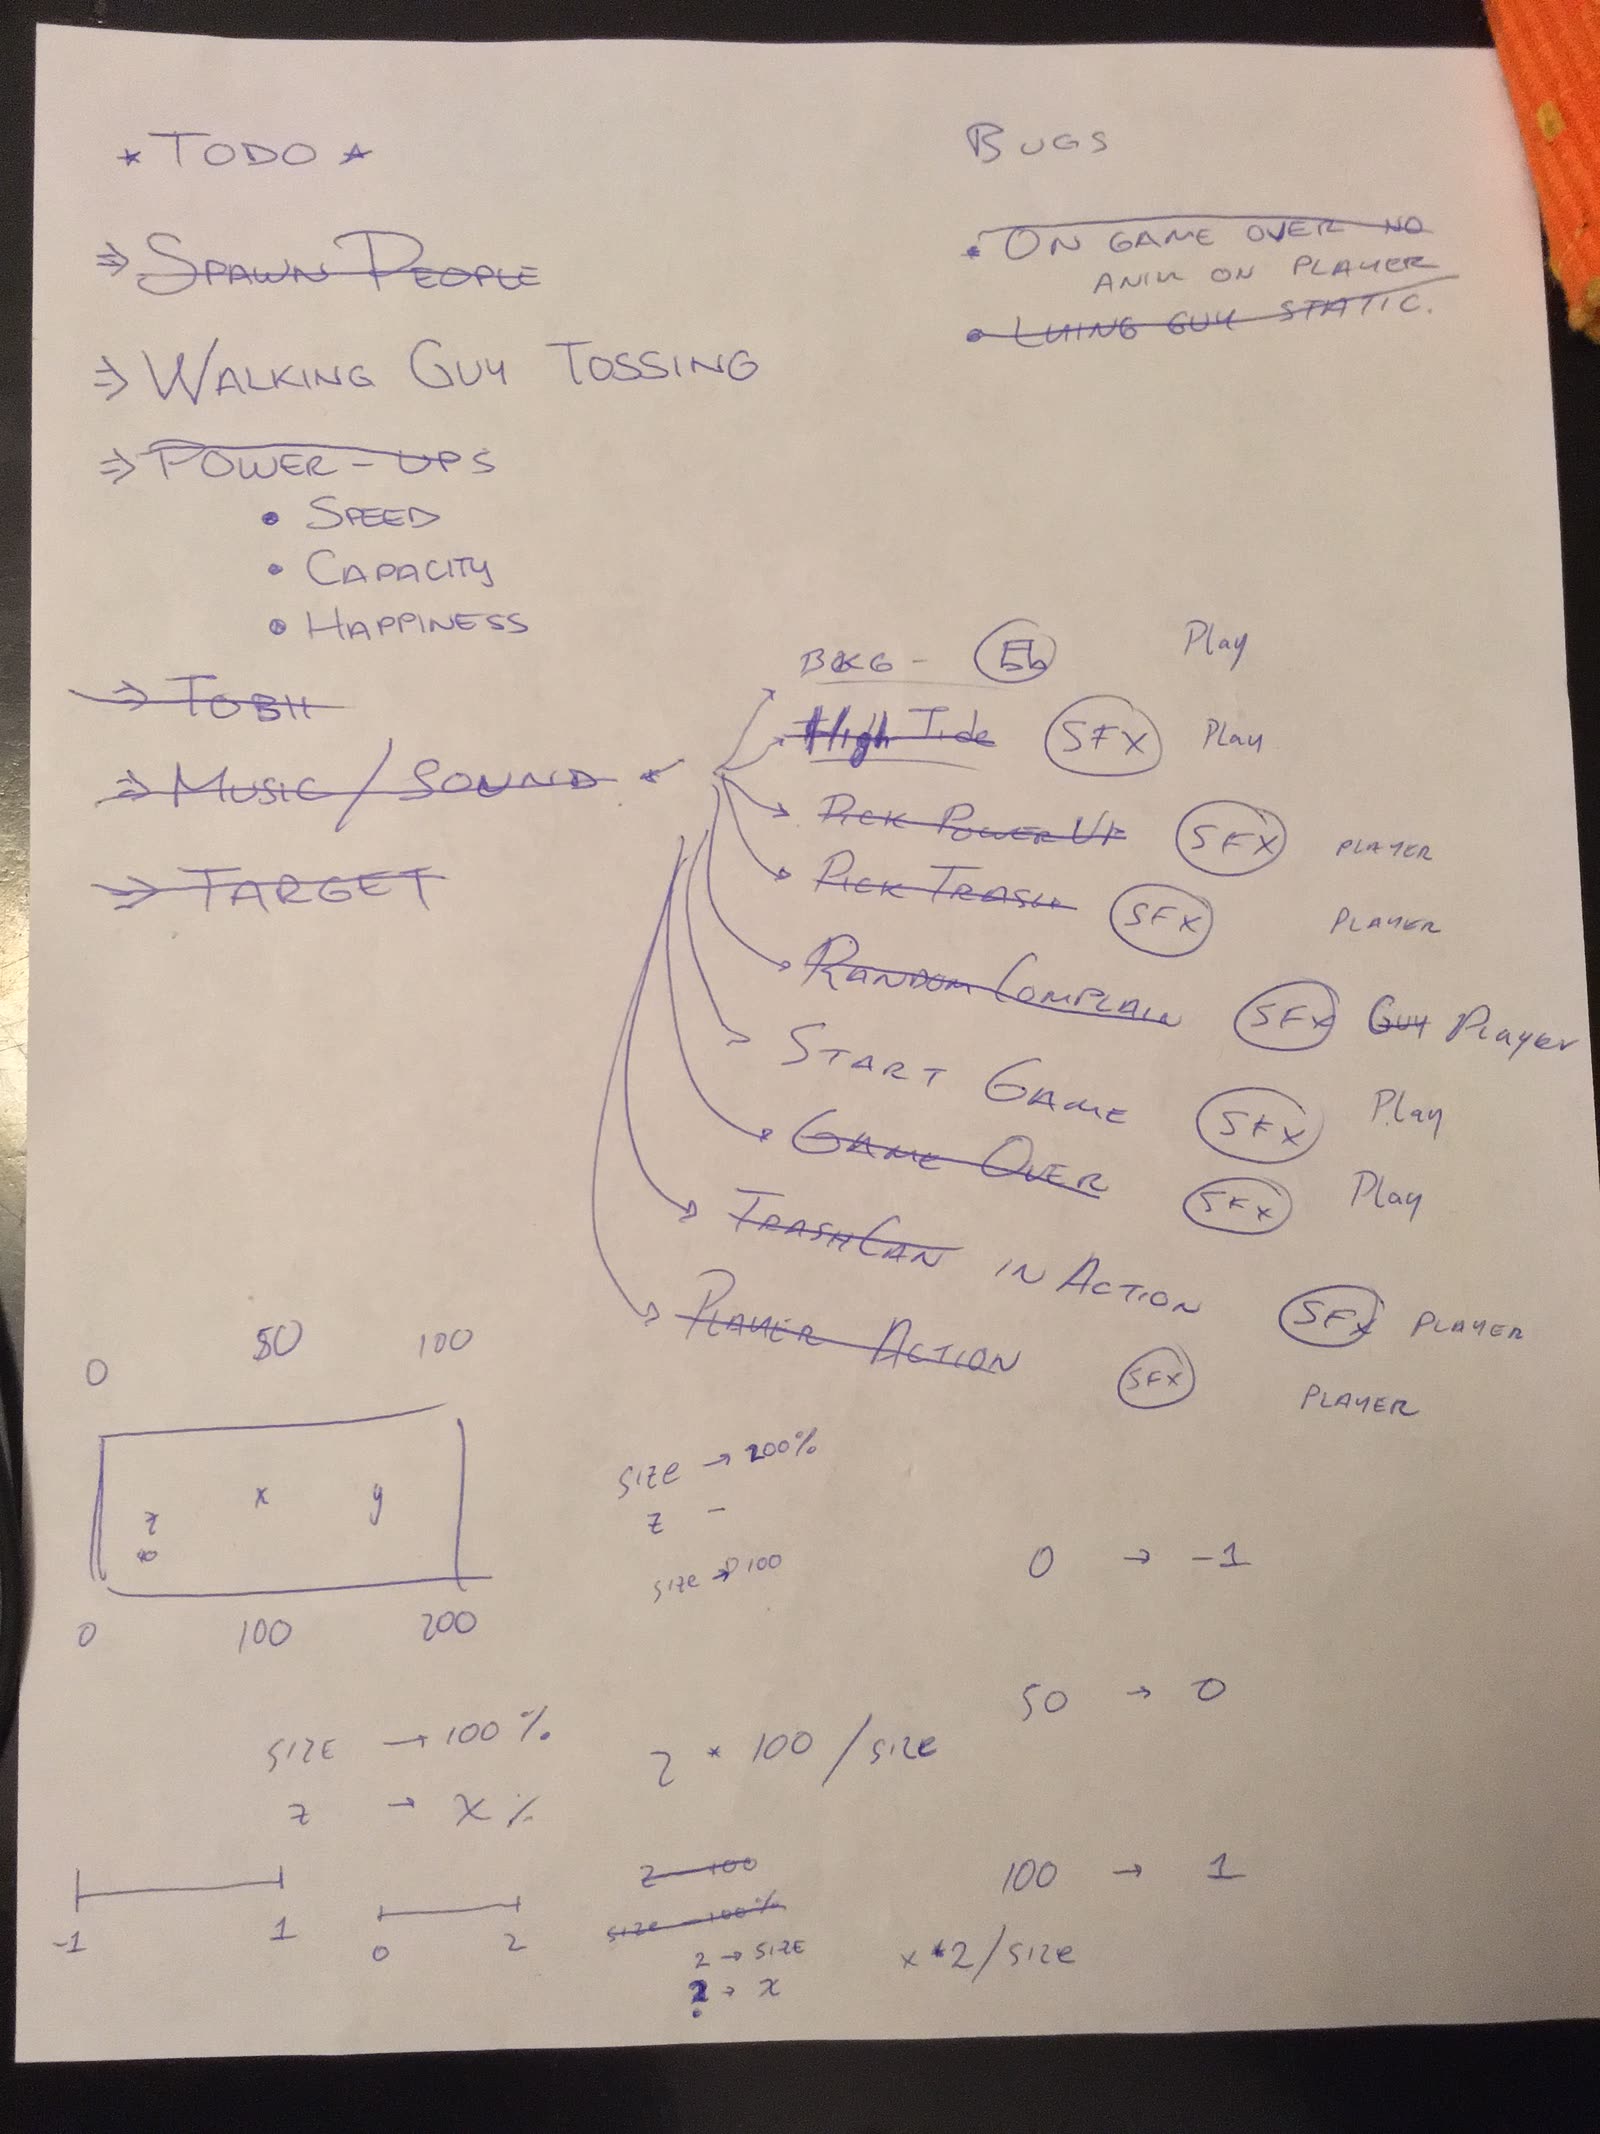 * TODO *
BUGS
⇒ SPAWN PEOPLE
• ON GAME OVER NO
ANIM ON PLAYER
• LYING GUY STATIC.
⇒ WALKING GUY TOSSING
⇒ POWER-UPS
• SPEED
• CAPACITY
• HAPPINESS
⇒ TOBII
⇒ MUSIC / SOUND
⇒ TARGET
BKG - Play
High Tide SFX Play
PICK POWER UP SFX PLAYER
PICK TRASH SFX PLAYER
RANDOM COMPLAIN SFX GUY Player
START GAME SFX Play
GAME OVER SFX Play
TRASHCAN IN ACTION SFX PLAYER
PLAYER ACTION SFX PLAYER
0 50 100
z x y
0 100 200
SIZE → 200%
z -
SIZE → 100
0 → -1
50 → 0
100 → 1
x*2/SIZE
SIZE → 100%
z → x%
z * 100 / SIZE
-1 1
0 2
z - 100
SIZE - 100%
2 → SIZE
? → x